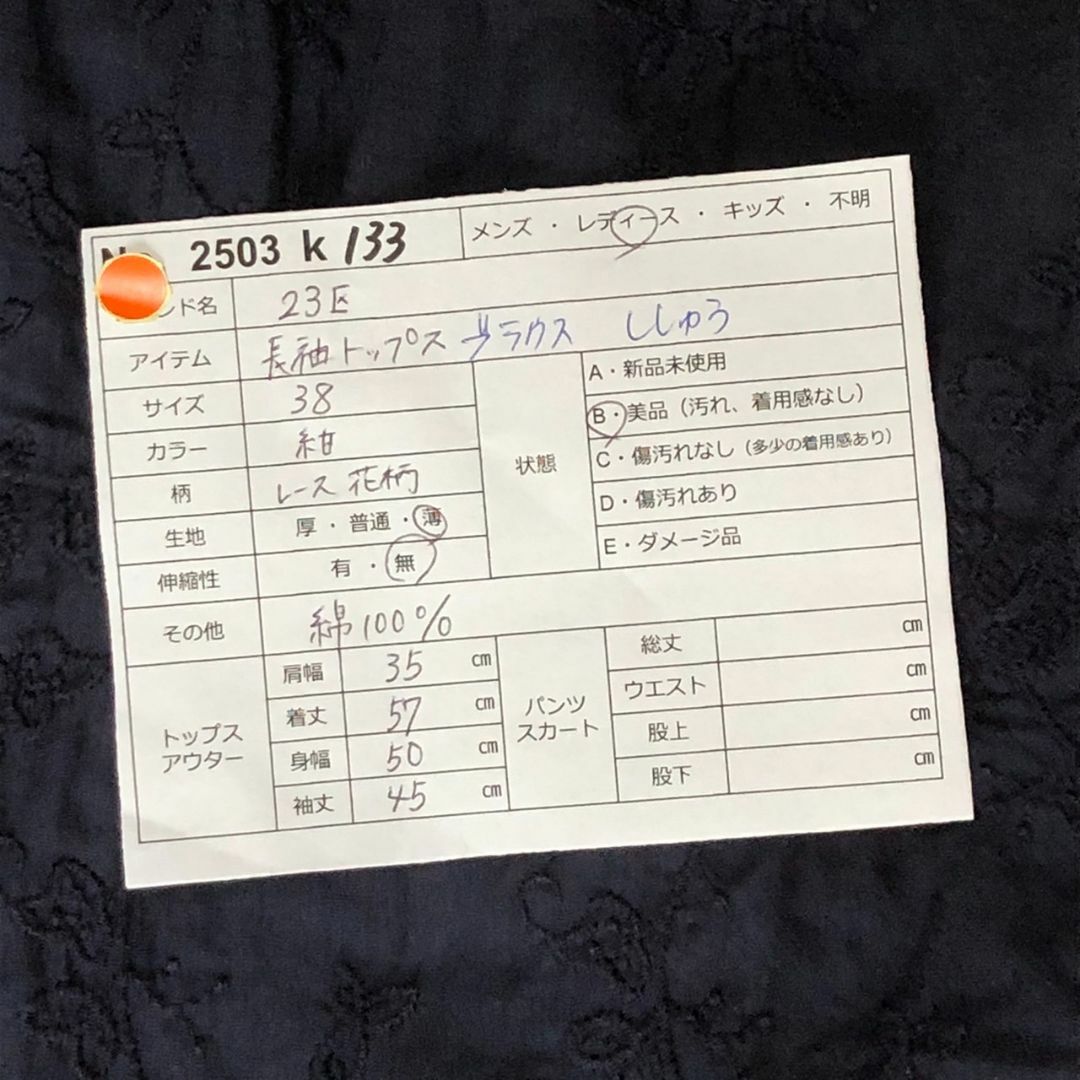 2503 k 133 メンズ ・ レディース ・ キッズ ・ 不明
ンド名 23区
アイテム 長袖トップス ブラウス ししゅう
サイズ 38
カラー 紺
柄 レース 花柄
生地 厚 ・ 普通 ・ 薄
伸縮性 有 ・ 無
状態
A・新品未使用
B・美品（汚れ、着用感なし）
C・傷汚れなし（多少の着用感あり）
D・傷汚れあり
E・ダメージ品
その他 綿100%
トップス
アウター
肩幅 35 cm
着丈 57 cm
身幅 50 cm
袖丈 45 cm
パンツ
スカート
総丈 cm
ウエスト cm
股上 cm
股下 cm